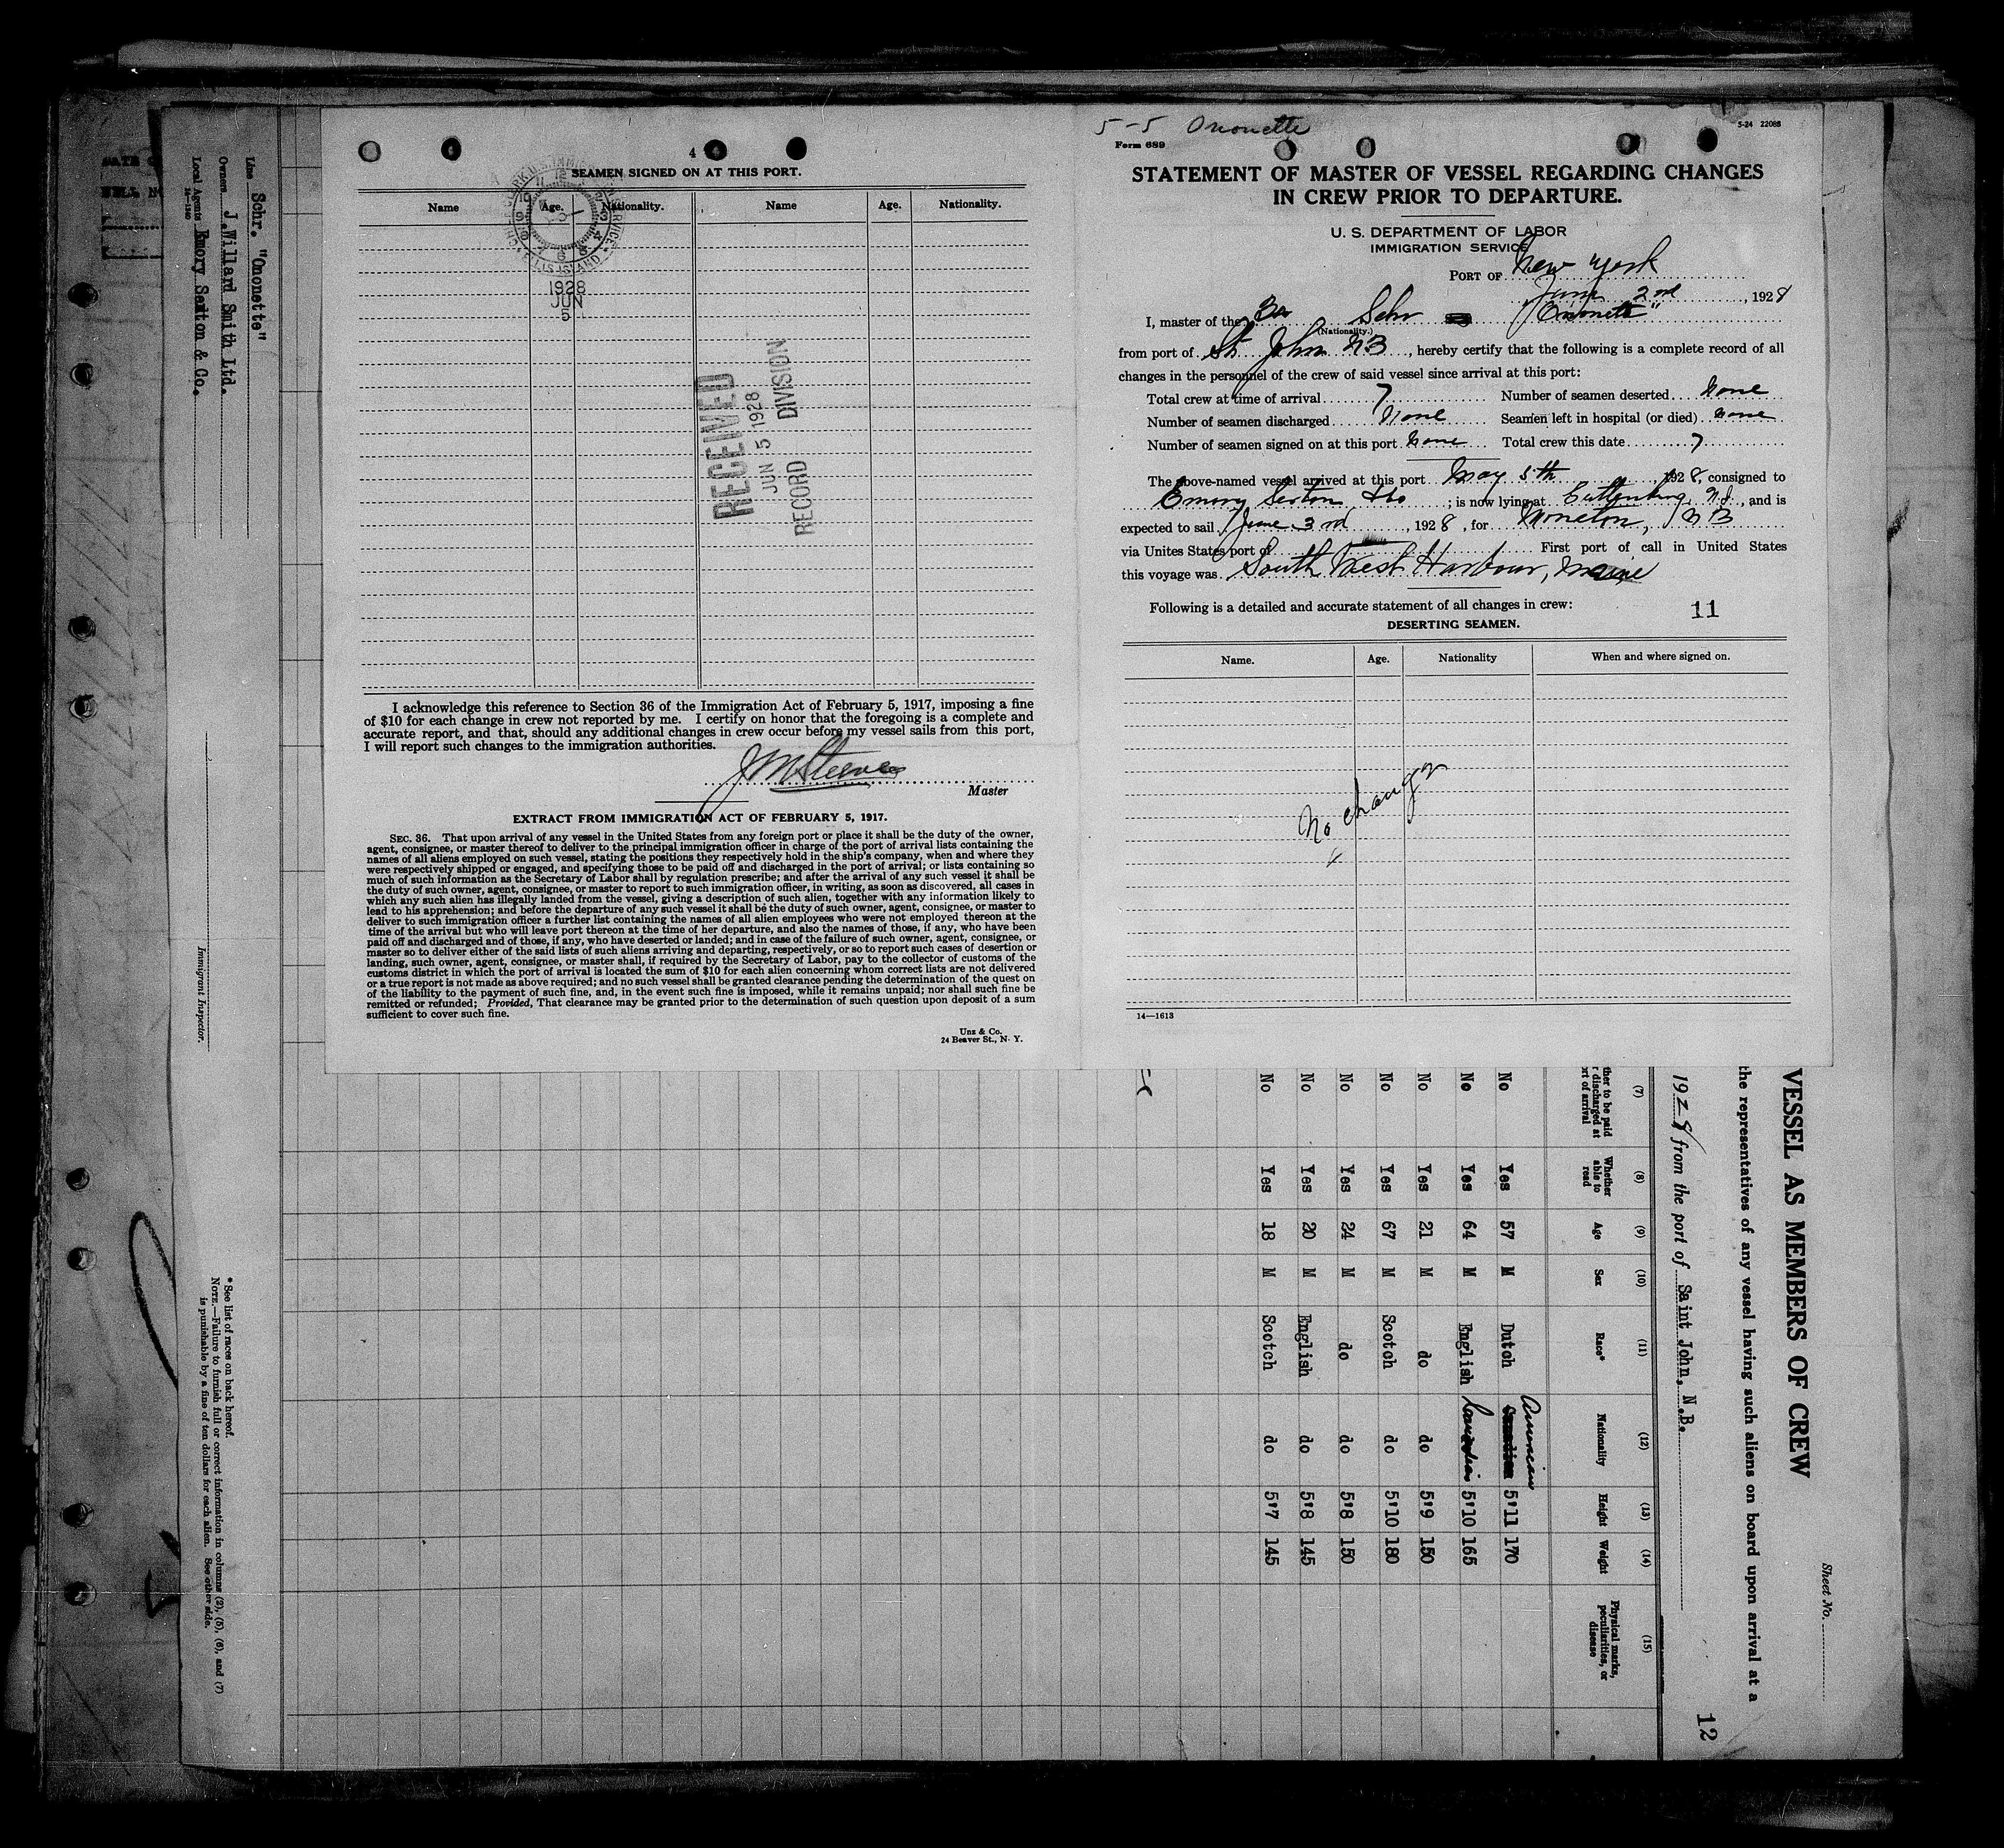 5-5 Ononette
5-24 22088
Form 689
STATEMENT OF MASTER OF VESSEL REGARDING CHANGES
IN CREW PRIOR TO DEPARTURE.
U. S. DEPARTMENT OF LABOR
IMMIGRATION SERVICE
PORT OF New York
June 2nd, 1928
I, master of the Br Schr "Ononette"
(Nationality.)
from port of St. John NB, hereby certify that the following is a complete record of all
changes in the personnel of the crew of said vessel since arrival at this port:
Total crew at time of arrival 7 Number of seamen deserted None
Number of seamen discharged None Seamen left in hospital (or died) None
Number of seamen signed on at this port None Total crew this date 7
The above-named vessel arrived at this port May 5th, 1928, consigned to
Emory Sexton & Co; is now lying at Guttenburg, NJ, and is
expected to sail June 3rd, 1928, for Moncton, NB
via Unites States port of First port of call in United States
this voyage was South West Harbour, Maine
Following is a detailed and accurate statement of all changes in crew:
11
DESERTING SEAMEN.
Name. Age. Nationality When and where signed on.
No change
14—1613
4
SEAMEN SIGNED ON AT THIS PORT.
Name Age. Nationality. Name Age. Nationality.
ELLIS ISLAND
1928
JUN
5
RECEIVED
JUN 5 1928
RECORD DIVISION
I acknowledge this reference to Section 36 of the Immigration Act of February 5, 1917, imposing a fine
of $10 for each change in crew not reported by me. I certify on honor that the foregoing is a complete and
accurate report, and that, should any additional changes in crew occur before my vessel sails from this port,
I will report such changes to the immigration authorities.
J M Steeves
Master
EXTRACT FROM IMMIGRATION ACT OF FEBRUARY 5, 1917.
SEC. 36. That upon arrival of any vessel in the United States from any foreign port or place it shall be the duty of the owner,
agent, consignee, or master thereof to deliver to the principal immigration officer in charge of the port of arrival lists containing the
names of all aliens employed on such vessel, stating the positions they respectively hold in the ship's company, when and where they
were respectively shipped or engaged, and specifying those to be paid off and discharged in the port of arrival; or lists containing so
much of such information as the Secretary of Labor shall by regulation prescribe; and after the arrival of any such vessel it shall be
the duty of such owner, agent, consignee, or master to report to such immigration officer, in writing, as soon as discovered, all cases in
which any such alien has illegally landed from the vessel, giving a description of such alien, together with any information likely to
lead to his apprehension; and before the departure of any such vessel it shall be the duty of such owner, agent, consignee, or master to
deliver to such immigration officer a further list containing the names of all alien employees who were not employed thereon at the
time of the arrival but who will leave port thereon at the time of her departure, and also the names of those, if any, who have been
paid off and discharged and of those, if any, who have deserted or landed; and in case of the failure of such owner, agent, consignee, or
master so to deliver either of the said lists of such aliens arriving and departing, respectively, or so to report such cases of desertion or
landing, such owner, agent, consignee, or master shall, if required by the Secretary of Labor, pay to the collector of customs of the
customs district in which the port of arrival is located the sum of $10 for each alien concerning whom correct lists are not delivered
or a true report is not made as above required; and no such vessel shall be granted clearance pending the determination of the quest on
of the liability to the payment of such fine, and, in the event such fine is imposed, while it remains unpaid; nor shall such fine be
remitted or refunded; Provided, That clearance may be granted prior to the determination of such question upon deposit of a sum
sufficient to cover such fine.
Unz & Co.
24 Beaver St., N. Y.
Sheet No.
VESSEL AS MEMBERS OF CREW
the representatives of any vessel having such aliens on board upon arrival at a
1928 from the port of Saint John, N.B.
12
(7) (8) (9) (10) (11) (12) (13) (14) (15)
ther to be paid
r discharged at
rt of arrival
Whether
able to
read
Age
Sex
Race*
Nationality
Height
Weight
Physical marks,
peculiarities, or
disease
No Yes 57 M Dutch American 5'11 170
No Yes 64 M English Canadian 5'10 165
No Yes 21 M do do 5'9 150
No Yes 67 M Scotch do 5'10 180
No Yes 24 M do do 5'8 150
No Yes 20 M English do 5'8 145
No Yes 18 M Scotch do 5'7 145
Line Schr. "Ononette"
Owners J.Willard Smith Ltd.
Local Agents Emory Sexton & Co.
Immigrant Inspector.
* See list of races on back hereof.
NOTE.—Failure to furnish full or correct information in columns (2), (5), (6), and (7)
is punishable by a fine of ten dollars for each alien. See other side.